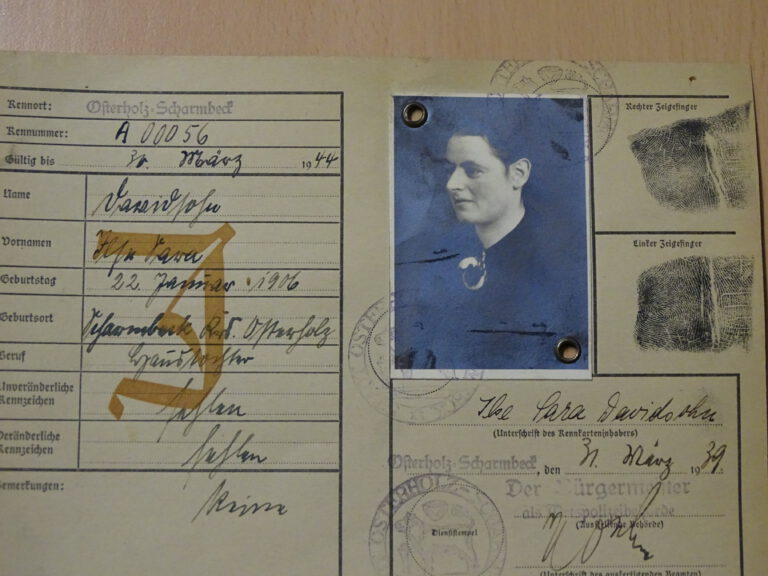 Kennort: Osterholz-Scharmbeck
Kennummer: A 00056
Gültig bis 30. März 1944
Name Davidsohn
Vornamen Ilse Sara
Geburtstag 22. Januar 1906
Geburtsort Scharmbeck Krs. Osterholz
Beruf Haustochter
Unveränderliche
Kennzeichen fehlen
Veränderliche
Kennzeichen fehlen
Bemerkungen: Keine
J
Rechter Zeigefinger
Linker Zeigefinger
Ilse Sara Davidsohn
(Unterschrift des Kennkarteninhabers)
Osterholz-Scharmbeck, den 31. März 1939
Der Bürgermeister
als Ortspolizeibehörde
(Ausstellende Behörde)
Dienststempel
(Unterschrift des ausfertigenden Beamten)